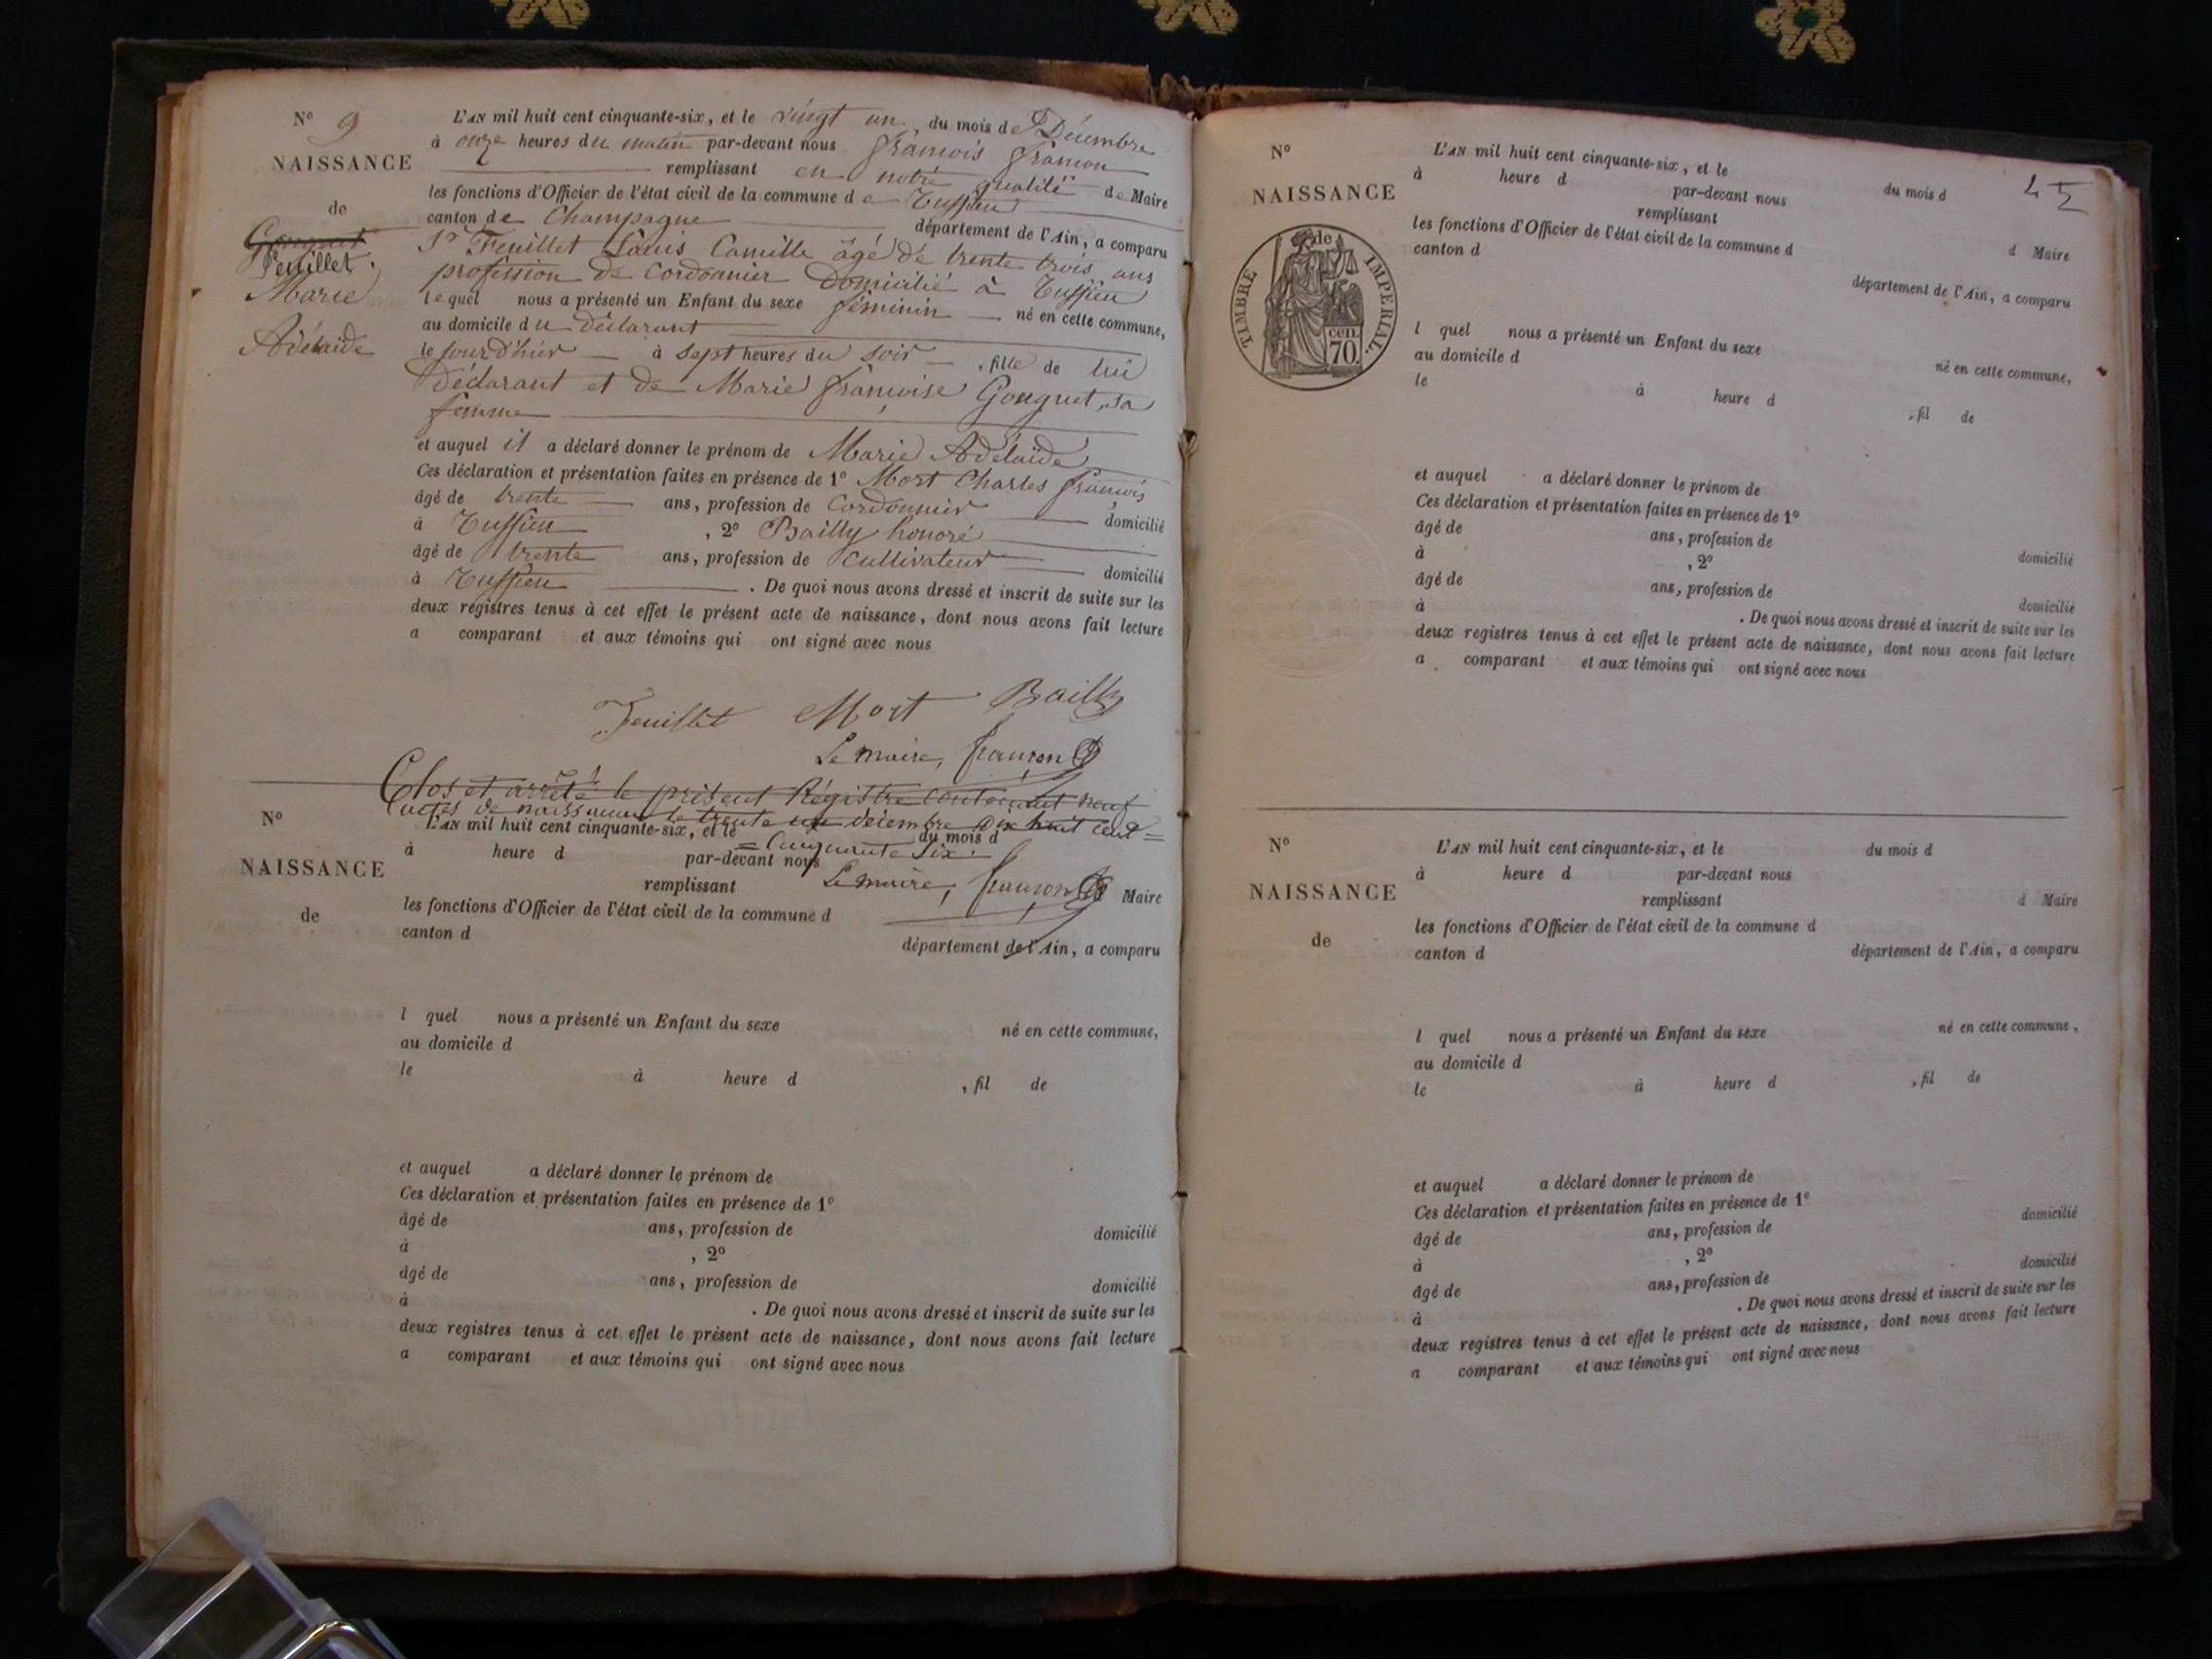 N° 9
NAISSANCE
de
Gonguet
Feuillet.
Marie
Adélaïde
L'AN mil huit cent cinquante-six, et le vingt un, du mois de Décembre
à onze heures du matin par-devant nous françois françon
remplissant en notre qualité de Maire
les fonctions d'Officier de l'état civil de la commune de
canton de Champagne département de l'Ain, a comparu
Sr Feuillet Louis Camille âgé de trente trois ans
profession de cordonnier domicilié à
lequel nous a présenté un Enfant du sexe féminin né en cette commune,
au domicile du déclarant
le jour d'hier à sept heures du soir, fille de lui
déclarant et de Marie françoise Gonguet, sa
femme
et auquel il a déclaré donner le prénom de Marie Adélaïde
Ces déclaration et présentation faites en présence de 1° Mort Charles françois
âgé de trente ans, profession de Cordonnier domicilié
à , 2° Bailly honoré
âgé de trente ans, profession de cultivateur domicilié
à . De quoi nous avons dressé et inscrit de suite sur les
deux registres tenus à cet effet le présent acte de naissance, dont nous avons fait lecture
a comparant et aux témoins qui ont signé avec nous
Feuillet Mort Bailly
Le maire, françon
Clos et arrêté le présent Régistre contenant neuf
actes de naissance le trente un décembre dix huit cent =
= Cinquante Six.
Le maire, françon
N°
NAISSANCE
de
L'AN mil huit cent cinquante-six, et le du mois d
à heure d par-devant nous
remplissant Maire
les fonctions d'Officier de l'état civil de la commune d
canton d département de l'Ain, a comparu
l quel nous a présenté un Enfant du sexe né en cette commune,
au domicile d
le à heure d , fil de
et auquel a déclaré donner le prénom de
Ces déclaration et présentation faites en présence de 1°
âgé de ans, profession de domicilié
à , 2°
âgé de ans, profession de domicilié
à . De quoi nous avons dressé et inscrit de suite sur les
deux registres tenus à cet effet le présent acte de naissance, dont nous avons fait lecture
a comparant et aux témoins qui ont signé avec nous
45
N°
NAISSANCE
de
TIMBRE IMPERIAL.
70 cen.
L'AN mil huit cent cinquante-six, et le du mois d
à heure d par-devant nous
remplissant d Maire
les fonctions d'Officier de l'état civil de la commune d
canton d département de l'Ain, a comparu
l quel nous a présenté un Enfant du sexe né en cette commune,
au domicile d
le à heure d , fil de
et auquel a déclaré donner le prénom de
Ces déclaration et présentation faites en présence de 1°
âgé de ans, profession de domicilié
à , 2°
âgé de ans, profession de domicilié
à . De quoi nous avons dressé et inscrit de suite sur les
deux registres tenus à cet effet le présent acte de naissance, dont nous avons fait lecture
a comparant et aux témoins qui ont signé avec nous
N°
NAISSANCE
de
L'AN mil huit cent cinquante-six, et le du mois d
à heure d par-devant nous
remplissant d Maire
les fonctions d'Officier de l'état civil de la commune d
canton d département de l'Ain, a comparu
l quel nous a présenté un Enfant du sexe né en cette commune,
au domicile d
le à heure d , fil de
et auquel a déclaré donner le prénom de
Ces déclaration et présentation faites en présence de 1°
âgé de ans, profession de domicilié
à , 2°
âgé de ans, profession de domicilié
à . De quoi nous avons dressé et inscrit de suite sur les
deux registres tenus à cet effet le présent acte de naissance, dont nous avons fait lecture
a comparant et aux témoins qui ont signé avec nous